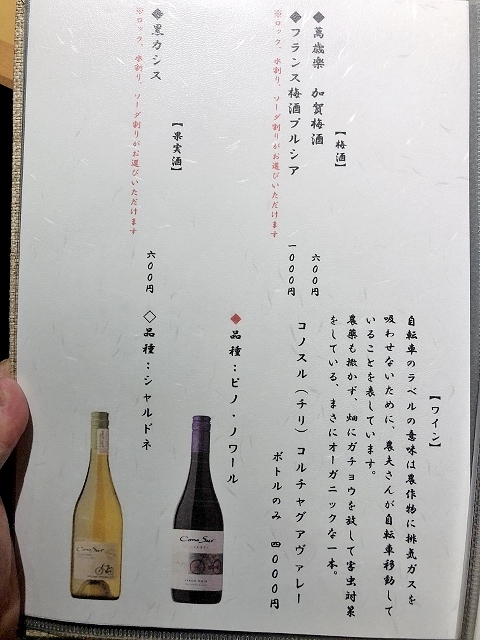 【梅酒】
◆萬歳楽 加賀梅酒 六〇〇円
◆フランス梅酒プルシア 一〇〇〇円
※ロック、水割り、ソーダ割りがお選びいただけます
【果実酒】
◆黒カシス 六〇〇円
※ロック、水割り、ソーダ割りがお選びいただけます
【ワイン】
自転車のラベルの意味は農作物に排気ガスを
吸わせないために、農夫さんが自転車移動して
いることを表しています。
農薬も撒かず、畑にガチョウを放して害虫対策
をしている、まさにオーガニックな一本。
コノスル(チリ)コルチャグアヴァレー
ボトルのみ 四〇〇〇円
◆品種:ピノ・ノワール
◇品種:シャルドネ
Cono Sur
Cono Sur
PINOT NOIR